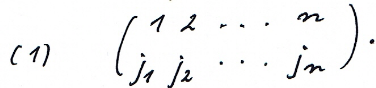 (1) ( 1 2 . . . n
j₁ j₂ . . . jₙ ).